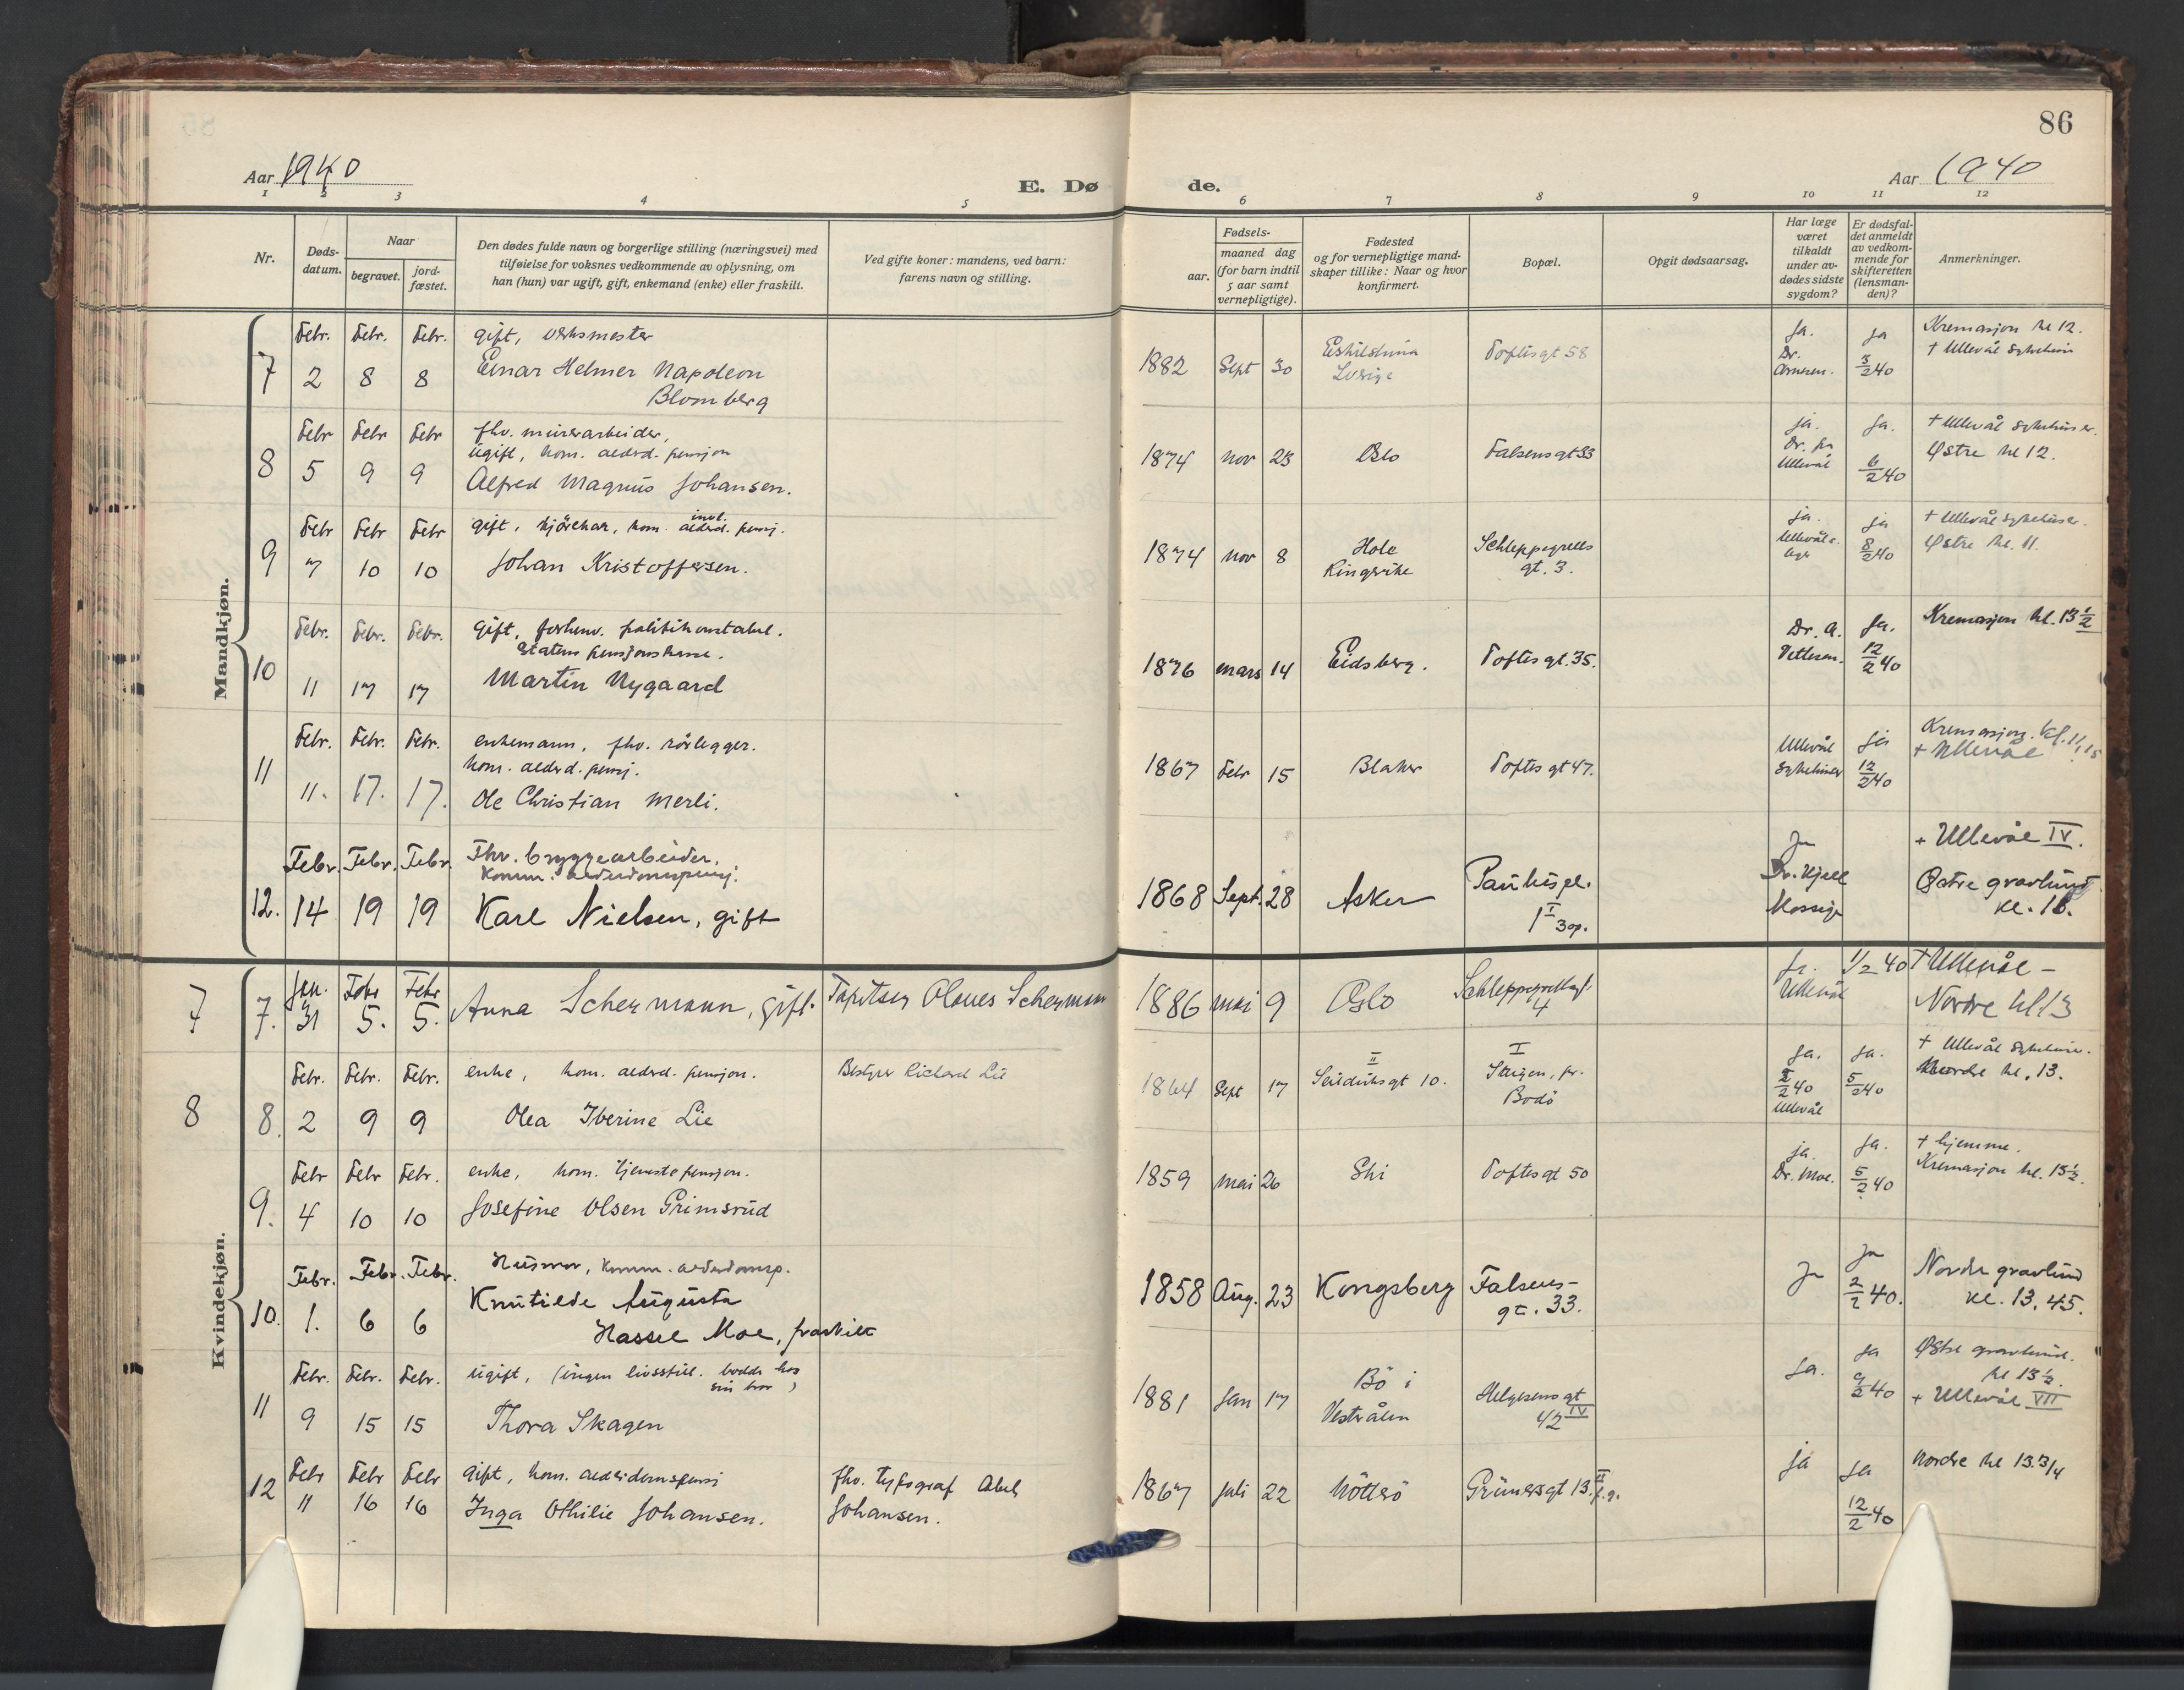 86
Aar 1940
E. Dø
de.
Aar 1940
1 2 3 4 5 6 7 8 9 10 11 12
Nr.
Døds-
datum.
Naar
begravet.
jord-
fæstet.
Den dødes fulde navn og borgerlige stilling (næringsvei) med
tilføielse for voksnes vedkommende av oplysning, om
han (hun) var ugift, gift, enkemand (enke) eller fraskilt.
Ved gifte koner: mandens, ved barn:
farens navn og stilling.
Fødsels-
aar.
maaned dag
(for barn indtil
5 aar samt
vernepligtige).
Fødested
og for vernepligtige mand-
skaper tillike: Naar og hvor
konfirmert.
Bopæl.
Opgit dødsaarsag.
Har læge
været
tilkaldt
under av-
dødes sidste
sygdom?
Er dødsfal-
det anmeldt
av vedkom-
mende for
skifteretten
(lensman-
den)?
Anmerkninger.
Mandkjøn.
Febr. Febr. Febr. gift, verksmester
7 2 8 8 Einar Helmer Napoleon
Blomberg
1882 Sept 30 Eskilstuna
Sverige
Toftesgt 58
Ja.
Dr.
Arnesen.
Ja
3/2 40
Kremasjon kl 12.
+ Ullevål Sykehus
Febr Febr Febr fhv. murerarbeider,
ugift, kom. alderd. pensjon
8 5 9 9 Alfred Magnus Johansen.
1874 Nov 23 Oslo Falsensgt 33
ja.
Dr. fra
Ullevål
Ja.
6/2 40
+ Ullevål sykehus
Østre kl 12.
Febr Febr Febr gift, kjørekar, kom. inval. alderd. pensj.
9 7 10 10 Johan Kristoffersen.
1874 Nov 8 Hole
Ringerike
Schleppegrells
gt. 3.
ja.
Ullevål s.
lege
ja
8/2 40
+ Ullevål sykehus
Østre kl. 11.
Febr. Febr. Febr. gift, forhenv. politikonstabel.
Statens pensjonskasse.
10 11 17 17 Martin Nygaard
1876 mars 14 Eidsberg. Toftesgt. 35.
Dr. A.
Pettersen.
Ja.
12/2 40
Kremasjon kl. 13 1/2
Febr. Febr. Febr. enkemann, fhv. rørlegger.
kom. alderd. pensj.
11 11. 17. 17. Ole Christian Merli.
1867 Febr 15 Blaker Toftesgt 47.
Ullevål
Sykehus
ja
12/2 40
Kremasjon. kl. 11,15
+ Ullevål
Febr. Febr. Febr. Fhv. bryggearbeider,
Komm. alderdomspensj.
12. 14 19 19 Karl Nielsen, gift
1868 Sept. 28 Asker Paulus pl.
1 I 3 op.
Ja
Dr. Kjell
Mossige
+ Ullevål IV.
Østre gravlund
Kvindekjøn.
Jan. Febr Febr
7 7. 31 5. 5. Anna Schermann, gift. Tapetser Olaves Schermann
1886 mai 9 Oslo Schleppegrellsgt.
4
Ja.
Ullevål
1/2 40
+ Ullevål -
Nordre kl 13
Febr. Febr. Febr. enke, kom. alderd. pensjon. Bestyrer Richard Lie
8 8. 2 9 9 Olea Iverine Lie
1864 Sept 17 II
Seilduksgt 10.
I
Steigen, pr.
Bodø
Ja.
2/2 40
Ullevål
Ja.
5/2 40
+ Ullevål Sykehus.
Nordre kl. 13.
Febr Febr Febr. enke, kom. tjenestepensjon.
9. 4 10 10 Josefine Olsen Grimsrud
1859 mai 26 Ski Toftesgt 50
ja.
Dr. Moe.
Ja.
5/2 40
+ hjemme.
Kremasjon kl. 13 1/2.
Febr. Febr. Febr. Husmor, komm. alderdomsp.
10. 1. 6 6 Knutilde Augusta
Hassel Moe, fraskilt
1858 Aug. 23 Kongsberg Falsens-
gt. 33.
Ja
Ja
2/2 40.
Nordre gravlund
kl. 13,45.
Febr. Febr. Febr. ugift, (ingen livsstill. bodde hos
sin bror)
11 9 15 15 Thora Skagen
1881 Jan 17 Bø i
Vesterålen
Helgesensgt
42 IV
Ja.
Ja
9/2 40
Østre gravlund.
kl 13 1/2.
+ Ullevål VII
Febr Febr Febr gift, kom. alderdomspensj fhv. typograf Abel
12 11 16 16 Inga Othilie Johansen. Johansen.
1867 juli 22 Nøtterø Grünersgt 13. II
ja
Ja
12/2 40
Nordre kl 13. 3/4